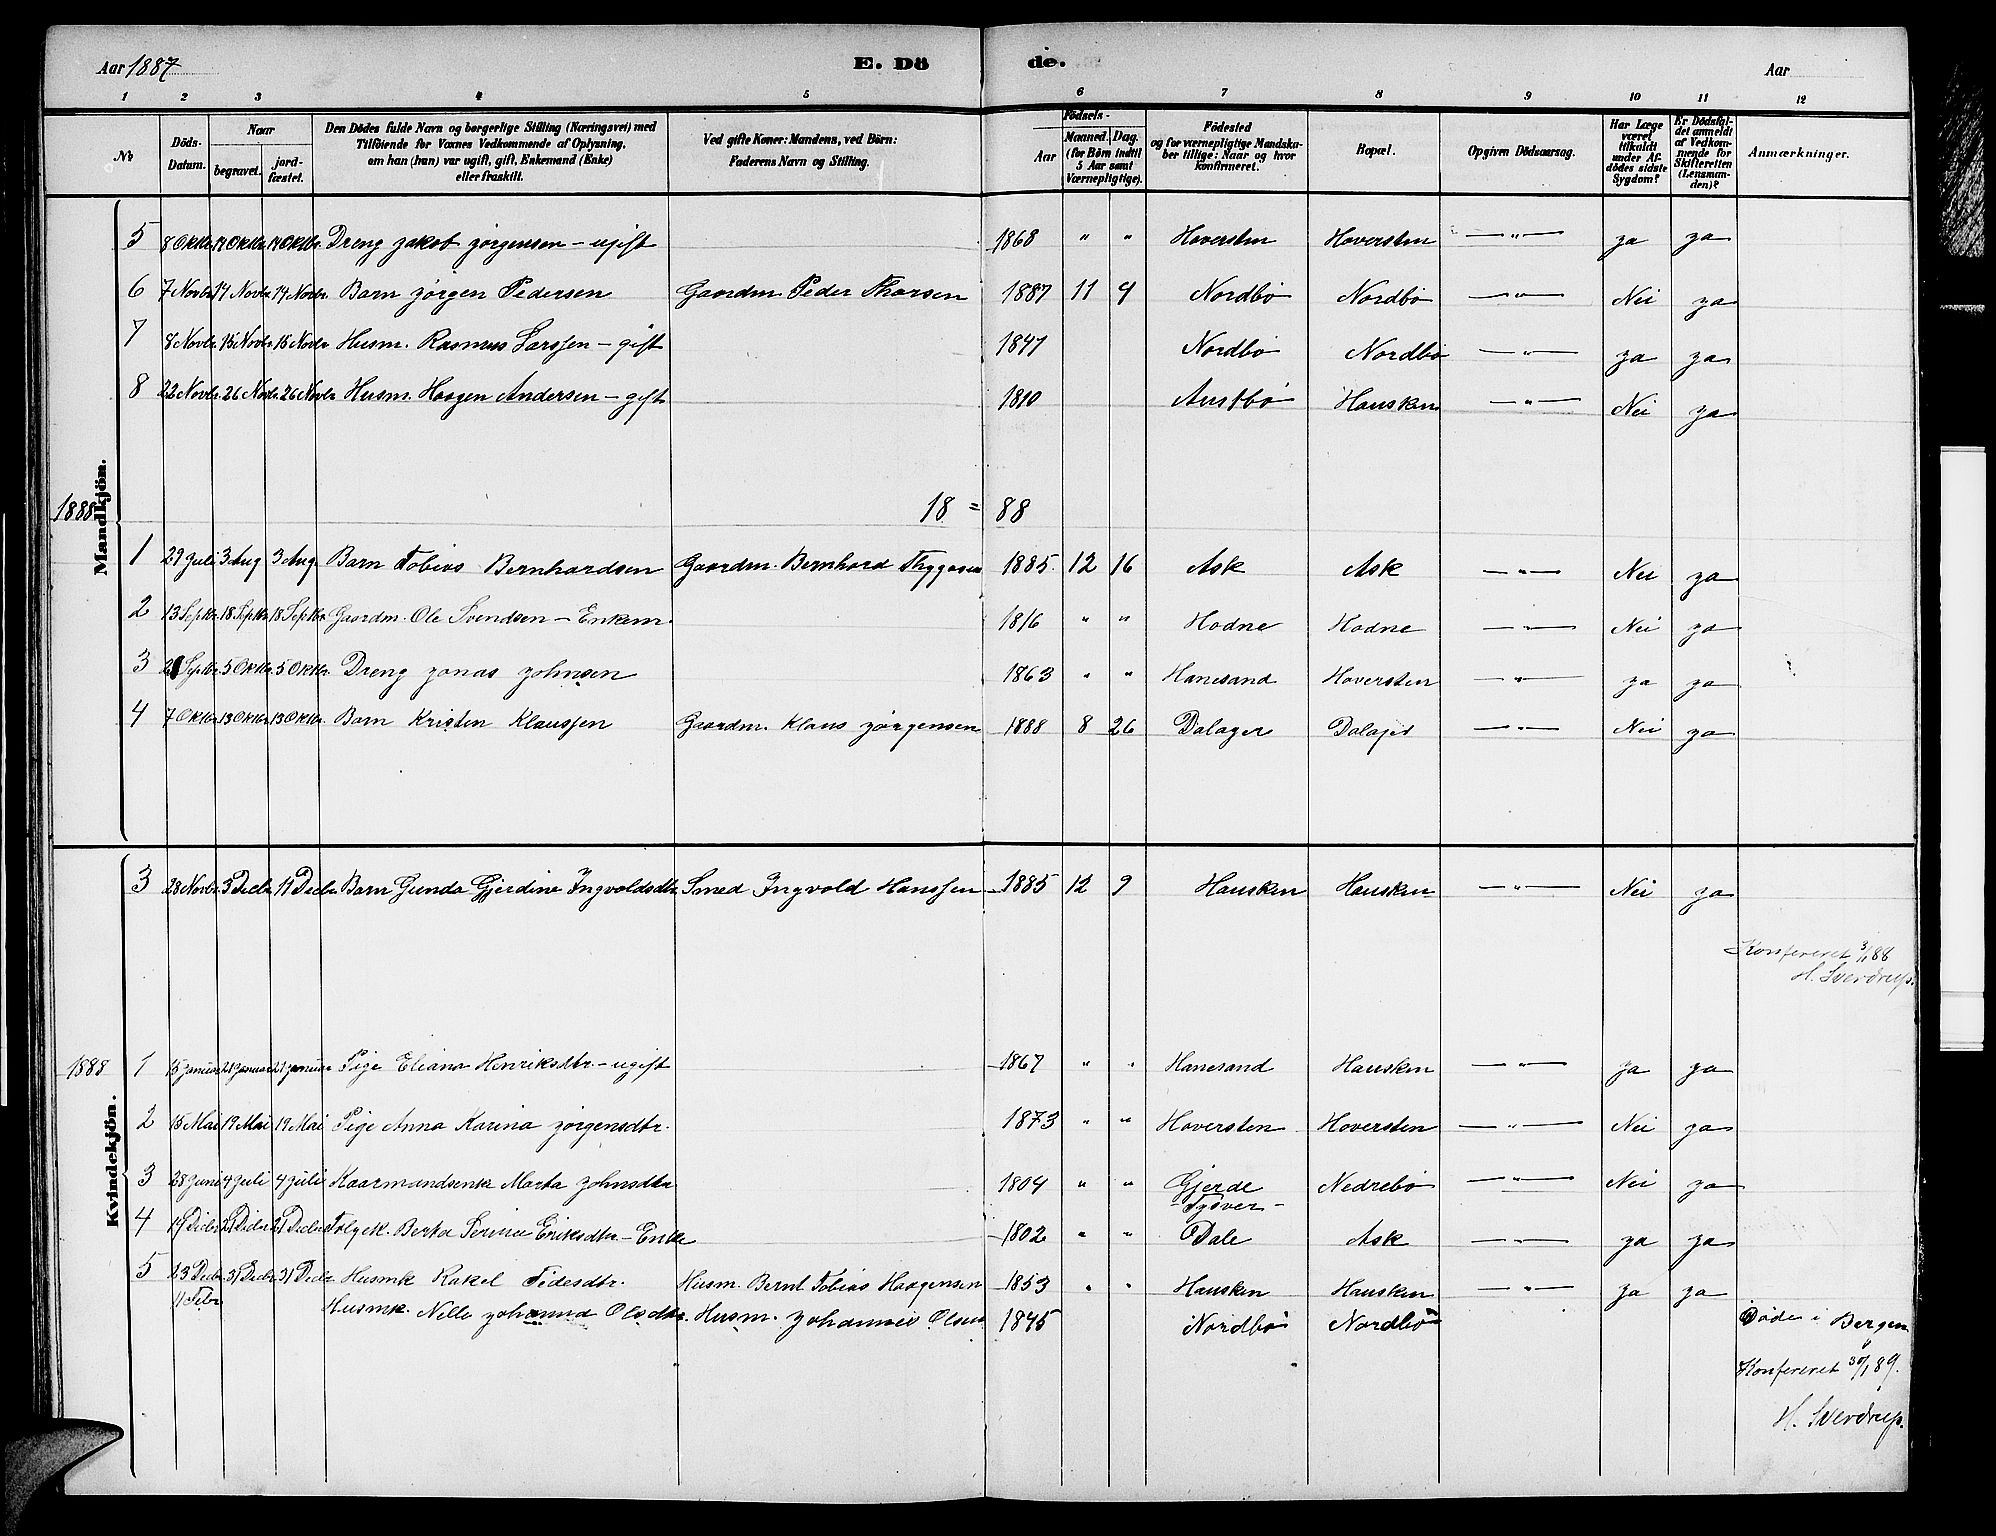 Aar 1887 E. Dö de. Aar
1 2 3 4 5 6 7 8 9 10 11 12
No Döds-Datum. Naar begravet. jord-fæstet. Den Dödes fulde Navn og borgerlige Stilling (Næringsvei) med Tilföiende for Voxnes Vedkommende af Oplysning, om han (hun) var ugift, gift, Enkemand (Enke) eller fraskilt. Ved gifte Koner: Mandens, ved Börn: Faderens Navn og Stilling. Födsels- Aar Maaned. Dag. (for Börn indtil 5 Aar samt Værnepligtige). Födested og for værnepligtige Mandskaber tillige: Naar og hvor konfirmeret. Bopæl. Opgiven Dödsaarsag. Har Læge været tilkaldt under Afdödes sidste Sygdom? Er Dödsfaldet anmeldt af Vedkommende for Skifteretten (Lensmanden)? Anmærkninger.
Mandkjön.
5 8 Oktbr. 14 Oktbr. 14 Oktbr. Dreng Jakob Jörgensen – ugift 1868 " " Hoversten Hoversten —"— Ja Ja
6 7 Novbr. 14 Novbr. 14 Novbr. Barn Jörgen Pedersen Gaardm. Peder Thorsen 1887 11 4 Nordbö Nordbö —"— Nei Ja
7 8 Novbr. 15 Novbr. 15 Novbr. Husm. Rasmus Larssen – gift 1847 Nordbö Nordbö —"— Ja Ja
8 22 Novbr. 26 Novbr. 26 Novbr. Husm. Haagen Andersen – gift 1810 Austbö Hausken —"— Nei Ja
1888 18 = 88
1 29 Juli 3 Aug 3 Aug. Barn Tobias Bernhardsen Gaardm. Bernhard Thygesen 1885 12 16 Ask Ask —"— Nei Ja
2 13 Septbr. 18 Septbr. 18 Septbr. Gaardm. Ole Svendsen – Enkem. 1816 " " Hodne Hodne —"— Nei Ja
3 Septbr. 5 Oktbr. 5 Oktbr. Dreng Jonas Johnsen 1863 " " Hanesand Hoversten —"— Ja Ja
4 7 Oktbr. 13 Oktbr. 13 Oktbr. Barn Kristen Klaussen Gaardm. Klaus Jörgensen 1888 8 26 Dalager Dalager —"— Nei Ja
Kvindekjön.
3 28 Novbr. 3 Decbr. 11 Decbr. Barn Gunda Gjerdine Ingvoldsdtr. Smed Ingvold Hanssen 1885 12 9 Hausken Hausken —"— Nei Ja
Konfereret 3/1 88
H. Sverdrup.
1888 1 15 Januar 21 Januar 21 Januar Pige Eliana Henriksdtr. – ugift 1867 " " Hanesand Hausken —"— Ja Ja
2 15 Mai 19 Mai 19 Mai Pige Anna Karina Jörgensdtr. 1873 " " Hoversten Hoversten —"— Nei Ja
3 28 Juni 4 Juli 4 Juli Kaarmandsenke Marta Johnsdtr. 1804 " " Gjerde Nedrebö —"— Nei Ja
– Tysver –
4 14 Decbr. 21 Decbr. 21 Decbr. Berta Serina Eriksdtr. – Enke 1802 " " Dale Ask —"— Ja Ja
5 23 Decbr. 31 Decbr. 31 Decbr. Husmk Rakel Tidesdtr. Husm. Bernt Tobias Haagensen 1853 " " Hausken Hausken —"— Ja Ja
11 Febr. Husmk. Nelle Johanna Olsdtr. Husm. Johannes Olsen 1845 Nordbö Nordbö Döde i Bergen
Konfereret 30/1 89.
H. Sverdrup.